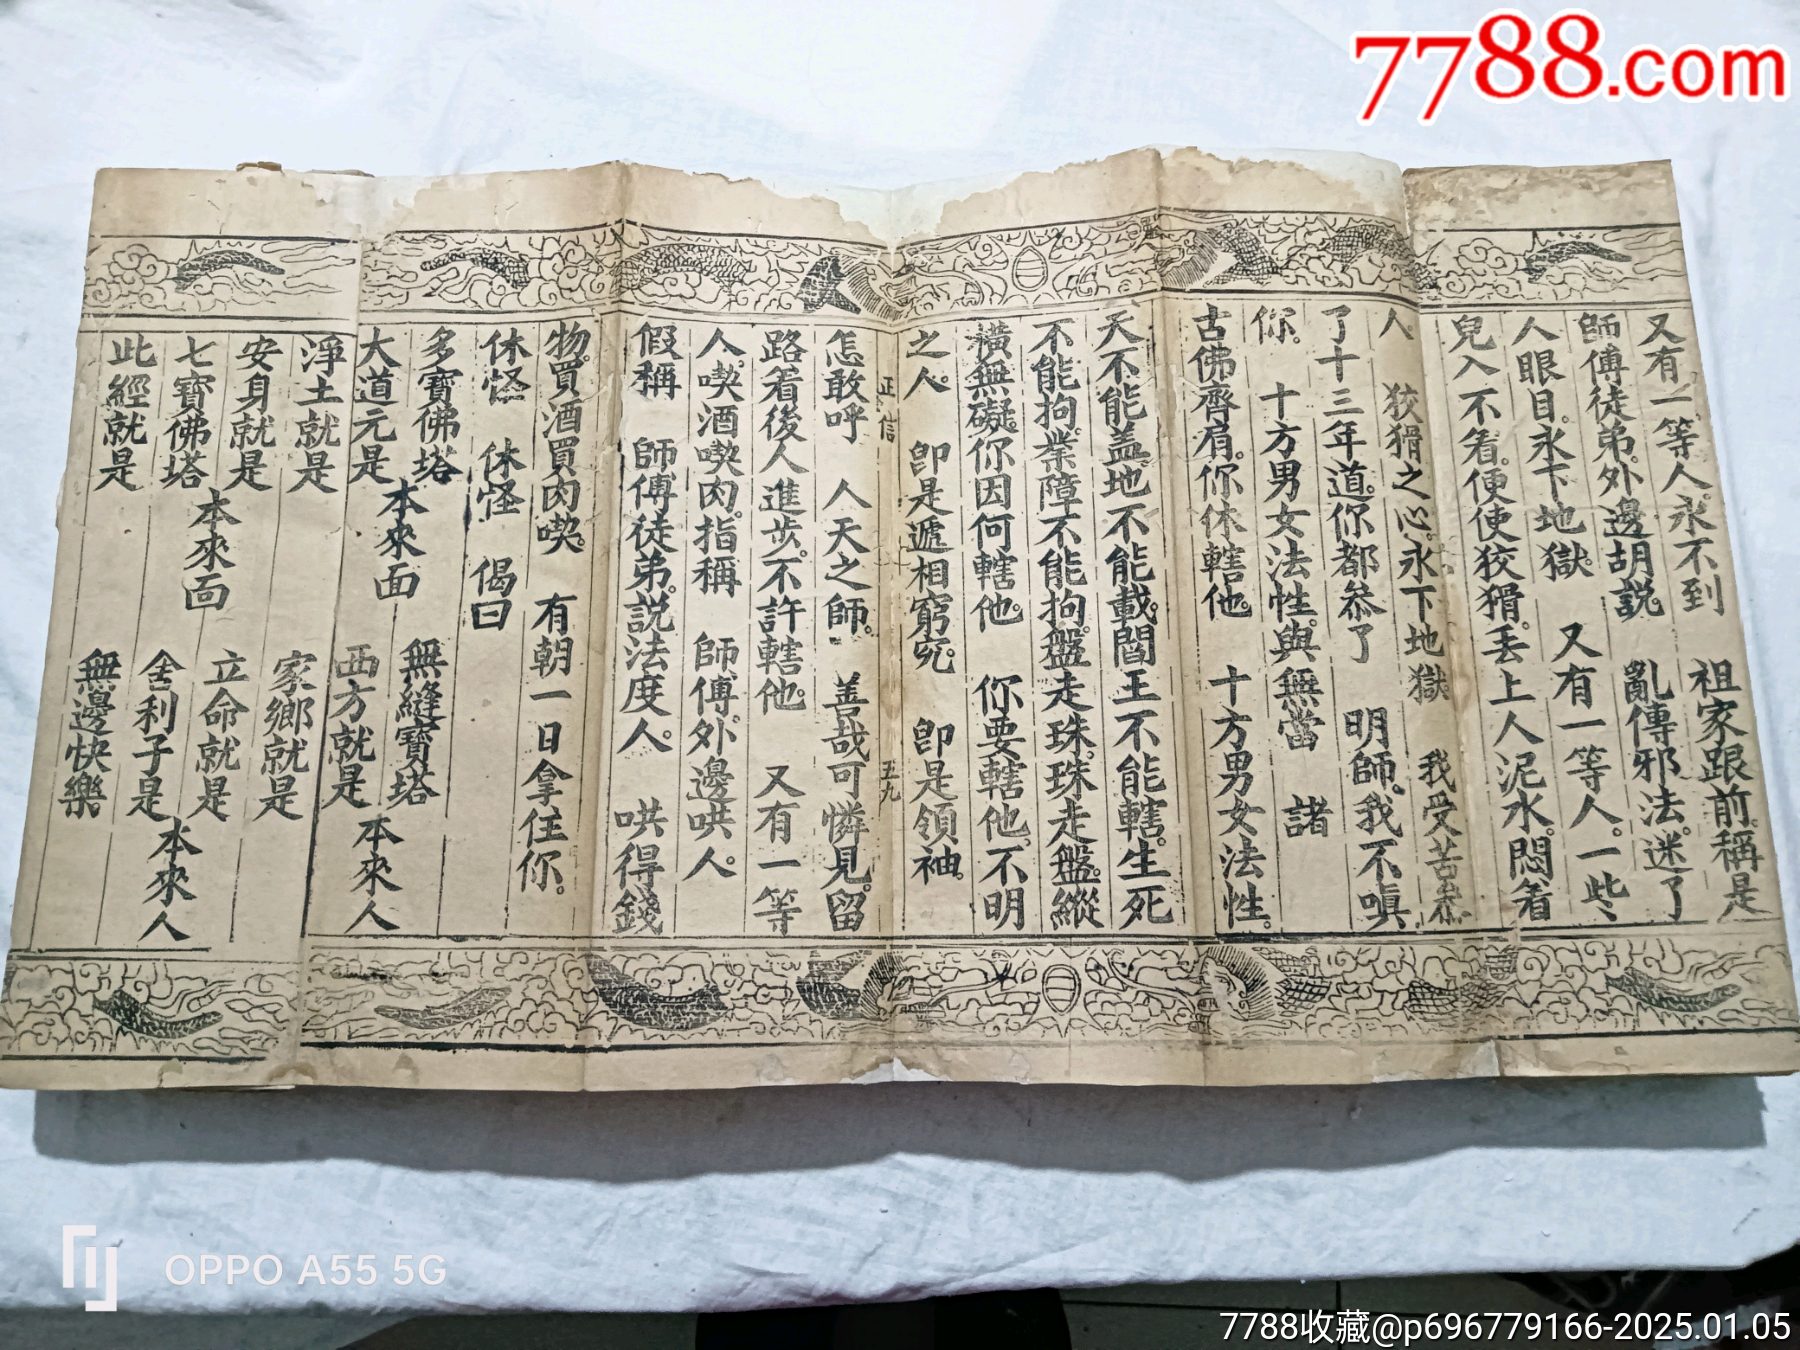 7788.com
又有一等人永不到　祖家跟前稱是
師傅徒弟。外邊胡説　亂傳邪法。迷了
人眼目。永下地獄。　又有一等人。一些
兒入不着。便使狡猾。丢上人泥水。悶着
人。　狡猾之心。永下地獄　我受苦叅
了十三年道。你都叅了　明師。我不嗔
你。　十方男女法性。與無當　諸
古佛齊肩。你休轄他。　十方男女法性。
天不能盖。地不能載。閻王不能轄。生死
不能拘。業障不能拘。盤走珠。珠走盤。縱
橫無礙。你因何轄他。　你要轄他。不明
之人。　卽是遞相窮究。　卽是領袖。
正信　五九
怎敢呼　人天之師。　善哉可憐見。留
路着後人進步。不許轄他。　又有一等
人。喫酒喫肉。指稱　師傅。外邊哄人。
假稱　師傅徒弟。説法度人。　哄得錢
物。買酒買肉喫。　有朝一日拿住你。
休怪　休怪　偈曰
多寶佛塔　無縫寶塔
本來面　本來人
大道元是　西方就是
淨土就是　家鄉就是
安身就是　立命就是
本來面　本來人
七寶佛塔　舍利子是
此經就是　無邊快樂
OPPO A55 5G
7788收藏@p696779166-2025.01.05